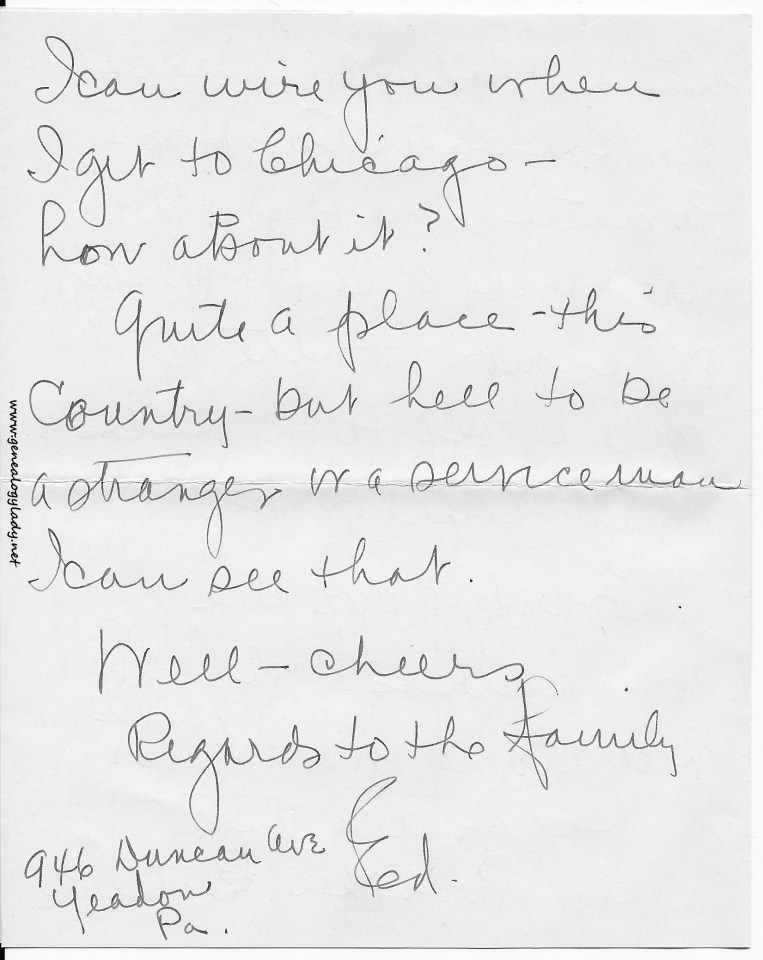 I can wire you when
I get to Chicago –
how about it?
Quite a place – this
Country – but hell to be
a stranger or a serviceman
I can see that.
Well – cheers
Regards to the family
Ed.
946 Duncan Ave
Yeadon
Pa.
www.genealogylady.net